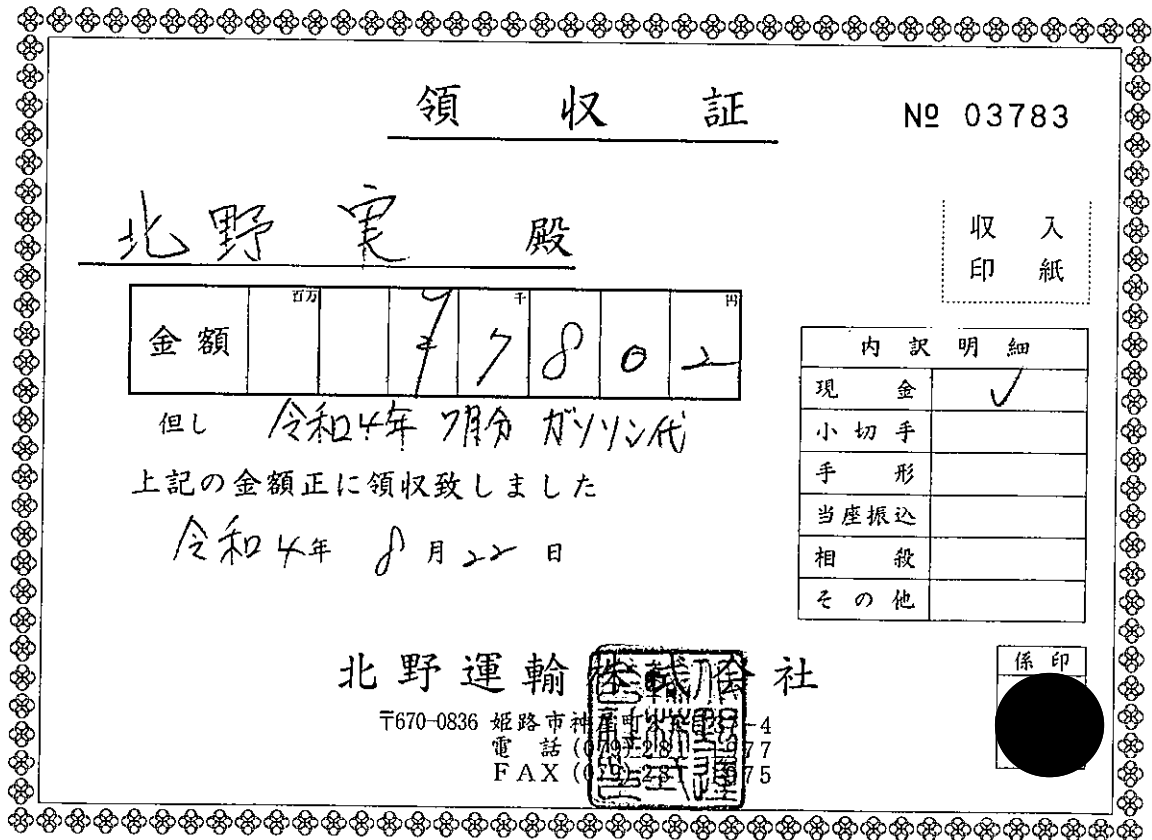 領収証
№ 03783
北野 実 殿
収入
印紙
金額 百万 千 円
¥7802
但し 令和4年 7月分 ガソリン代
上記の金額正に領収致しました
令和4年 8月22日
内訳明細
現金 ✓
小切手
手形
当座振込
相殺
その他
北野運輸株式会社
係印
〒670-0836 姫路市神屋町
電話(079)281
FAX(079)